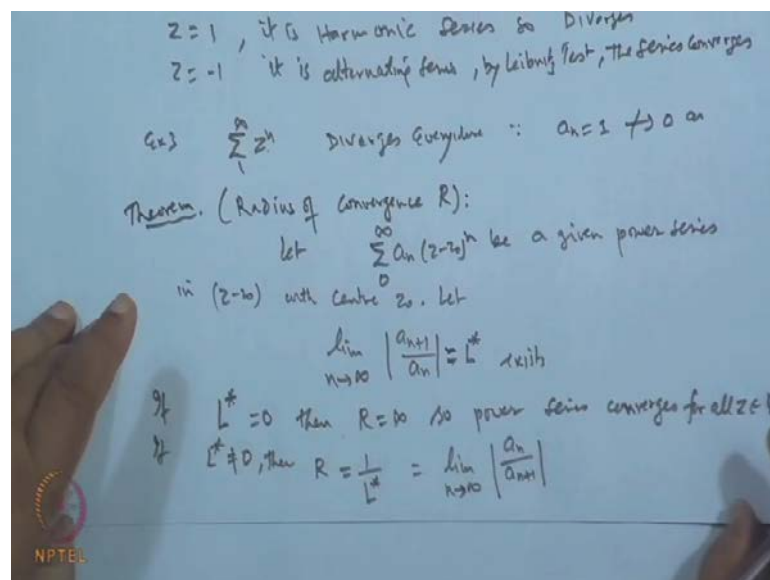 Z = 1, it is Harmonic Series so Diverges
Z = -1 it is alternating series, by Leibnitz Test, The series converges
Ex3 ∞∑1 zⁿ Diverges Everywhere ∵ aₙ = 1 ↛ 0 as
Theorem. (Radius of Convergence R):
Let ∞∑0 aₙ (z-z₀)ⁿ be a given power series
in (z-z₀) with centre z₀. Let
lim n→∞ |aₙ₊₁/aₙ| = L* exists
If L* = 0 then R = ∞ so power series converges for all z ∈
If L* ≠ 0, then R = 1/L* = lim n→∞ |aₙ/aₙ₊₁|
NPTEL